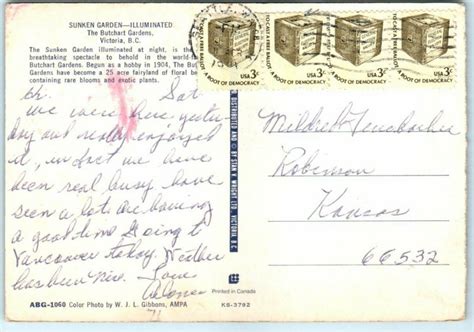 SUNKEN GARDEN—ILLUMINATED
The Butchart Gardens,
Victoria, B.C.
The Sunken Garden illuminated at night, is the
breathtaking spectacle to behold in the world-fa
Butchart Gardens. Begun as a hobby in 1904, The But
Gardens have become a 25 acre fairyland of floral be
containing rare blooms and exotic plants.
TO CAST A FREE BALLOT
A ROOT OF DEMOCRACY
USA 3c
TO CAST A FREE BALLOT
A ROOT OF DEMOCRACY
USA 3c
TO CAST A FREE BALLOT
A ROOT OF DEMOCRACY
USA 3c
TO CAST A FREE BALLOT
A ROOT OF DEMOCRACY
USA 3c
Sat
we were here yester
day and really enjoyed
it, in fact we have
been real busy, have
seen a lot are having
a good time. Going to
Vancouver today. Weather
has been nice. Love
DISTRIBUTED BY STAN V. WRIGHT LTD., VICTORIA, B.C.
Mildred
Robinson
Kansas
66532
Printed in Canada
ABG-1060 Color Photo by W. J. L. Gibbons, AMPA
KS-3792